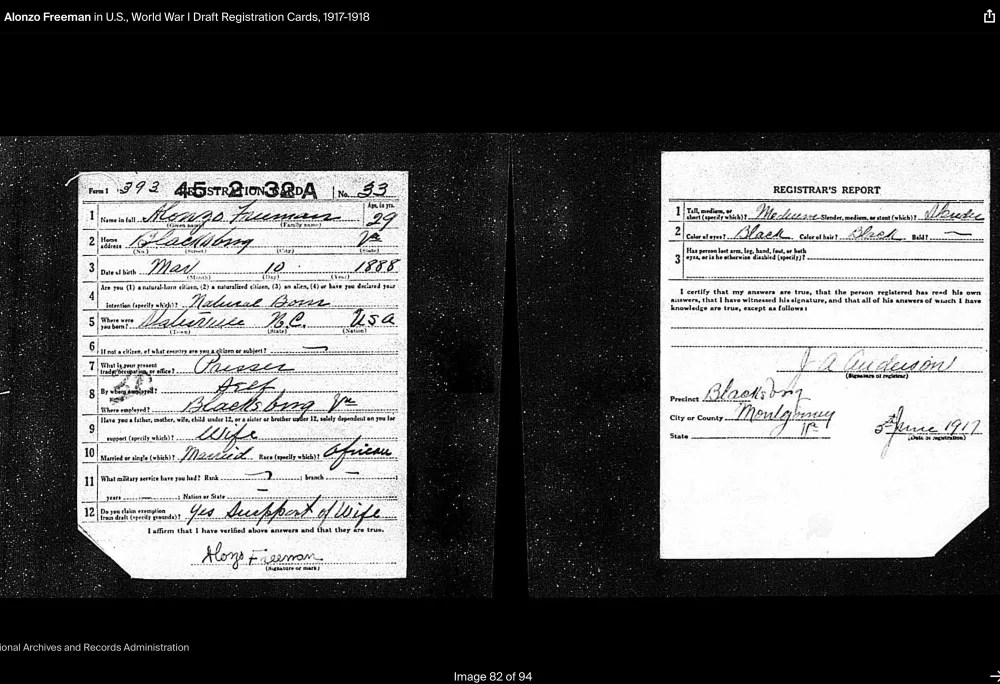 Alonzo Freeman in U.S., World War I Draft Registration Cards, 1917-1918
Form 1 393 REGISTRATION CARD No. 33
45-2-32A
1 Name in full Alonzo Freeman Age, in yrs. 29
(Given name) (Family name)
2 Home address Blacksburg Va
(No.) (Street) (City) (State)
3 Date of birth Mar 10 1888
(Month) (Day) (Year)
4 Are you (1) a natural-born citizen, (2) a naturalized citizen, (3) an alien, (4) or have you declared your
intention (specify which)? Natural Born
5 Where were you born? N.C. USA
(Town) (State) (Nation)
6 If not a citizen, of what country are you a citizen or subject? —
7 What is your present trade, occupation, or office? Presser
8 By whom employed? Self
Where employed? Blacksburg Va
9 Have you a father, mother, wife, child under 12, or a sister or brother under 12, solely dependent on you for
support (specify which)? Wife
10 Married or single (which)? Married Race (specify which)? African
11 What military service have you had? Rank — ; branch — ;
years ; Nation or State —
12 Do you claim exemption from draft (specify grounds)? Yes Suppport of Wife
I affirm that I have verified above answers and that they are true.
Alonzo Freeman
(Signature or mark)
REGISTRAR'S REPORT
1 Tall, medium, or short (specify which)? Medium Slender, medium, or stout (which)? Slender
2 Color of eyes? Black Color of hair? Black Bald? —
3 Has person lost arm, leg, hand, foot, or both
eyes, or is he otherwise disabled (specify)?
I certify that my answers are true, that the person registered has read his own
answers, that I have witnessed his signature, and that all of his answers of which I have
knowledge are true, except as follows:
J A Anderson
(Signature of registrar)
Precinct Blacksburg
City or County Montgomery
State Va 5th June 1917
(Date of registration)
ional Archives and Records Administration
Image 82 of 94